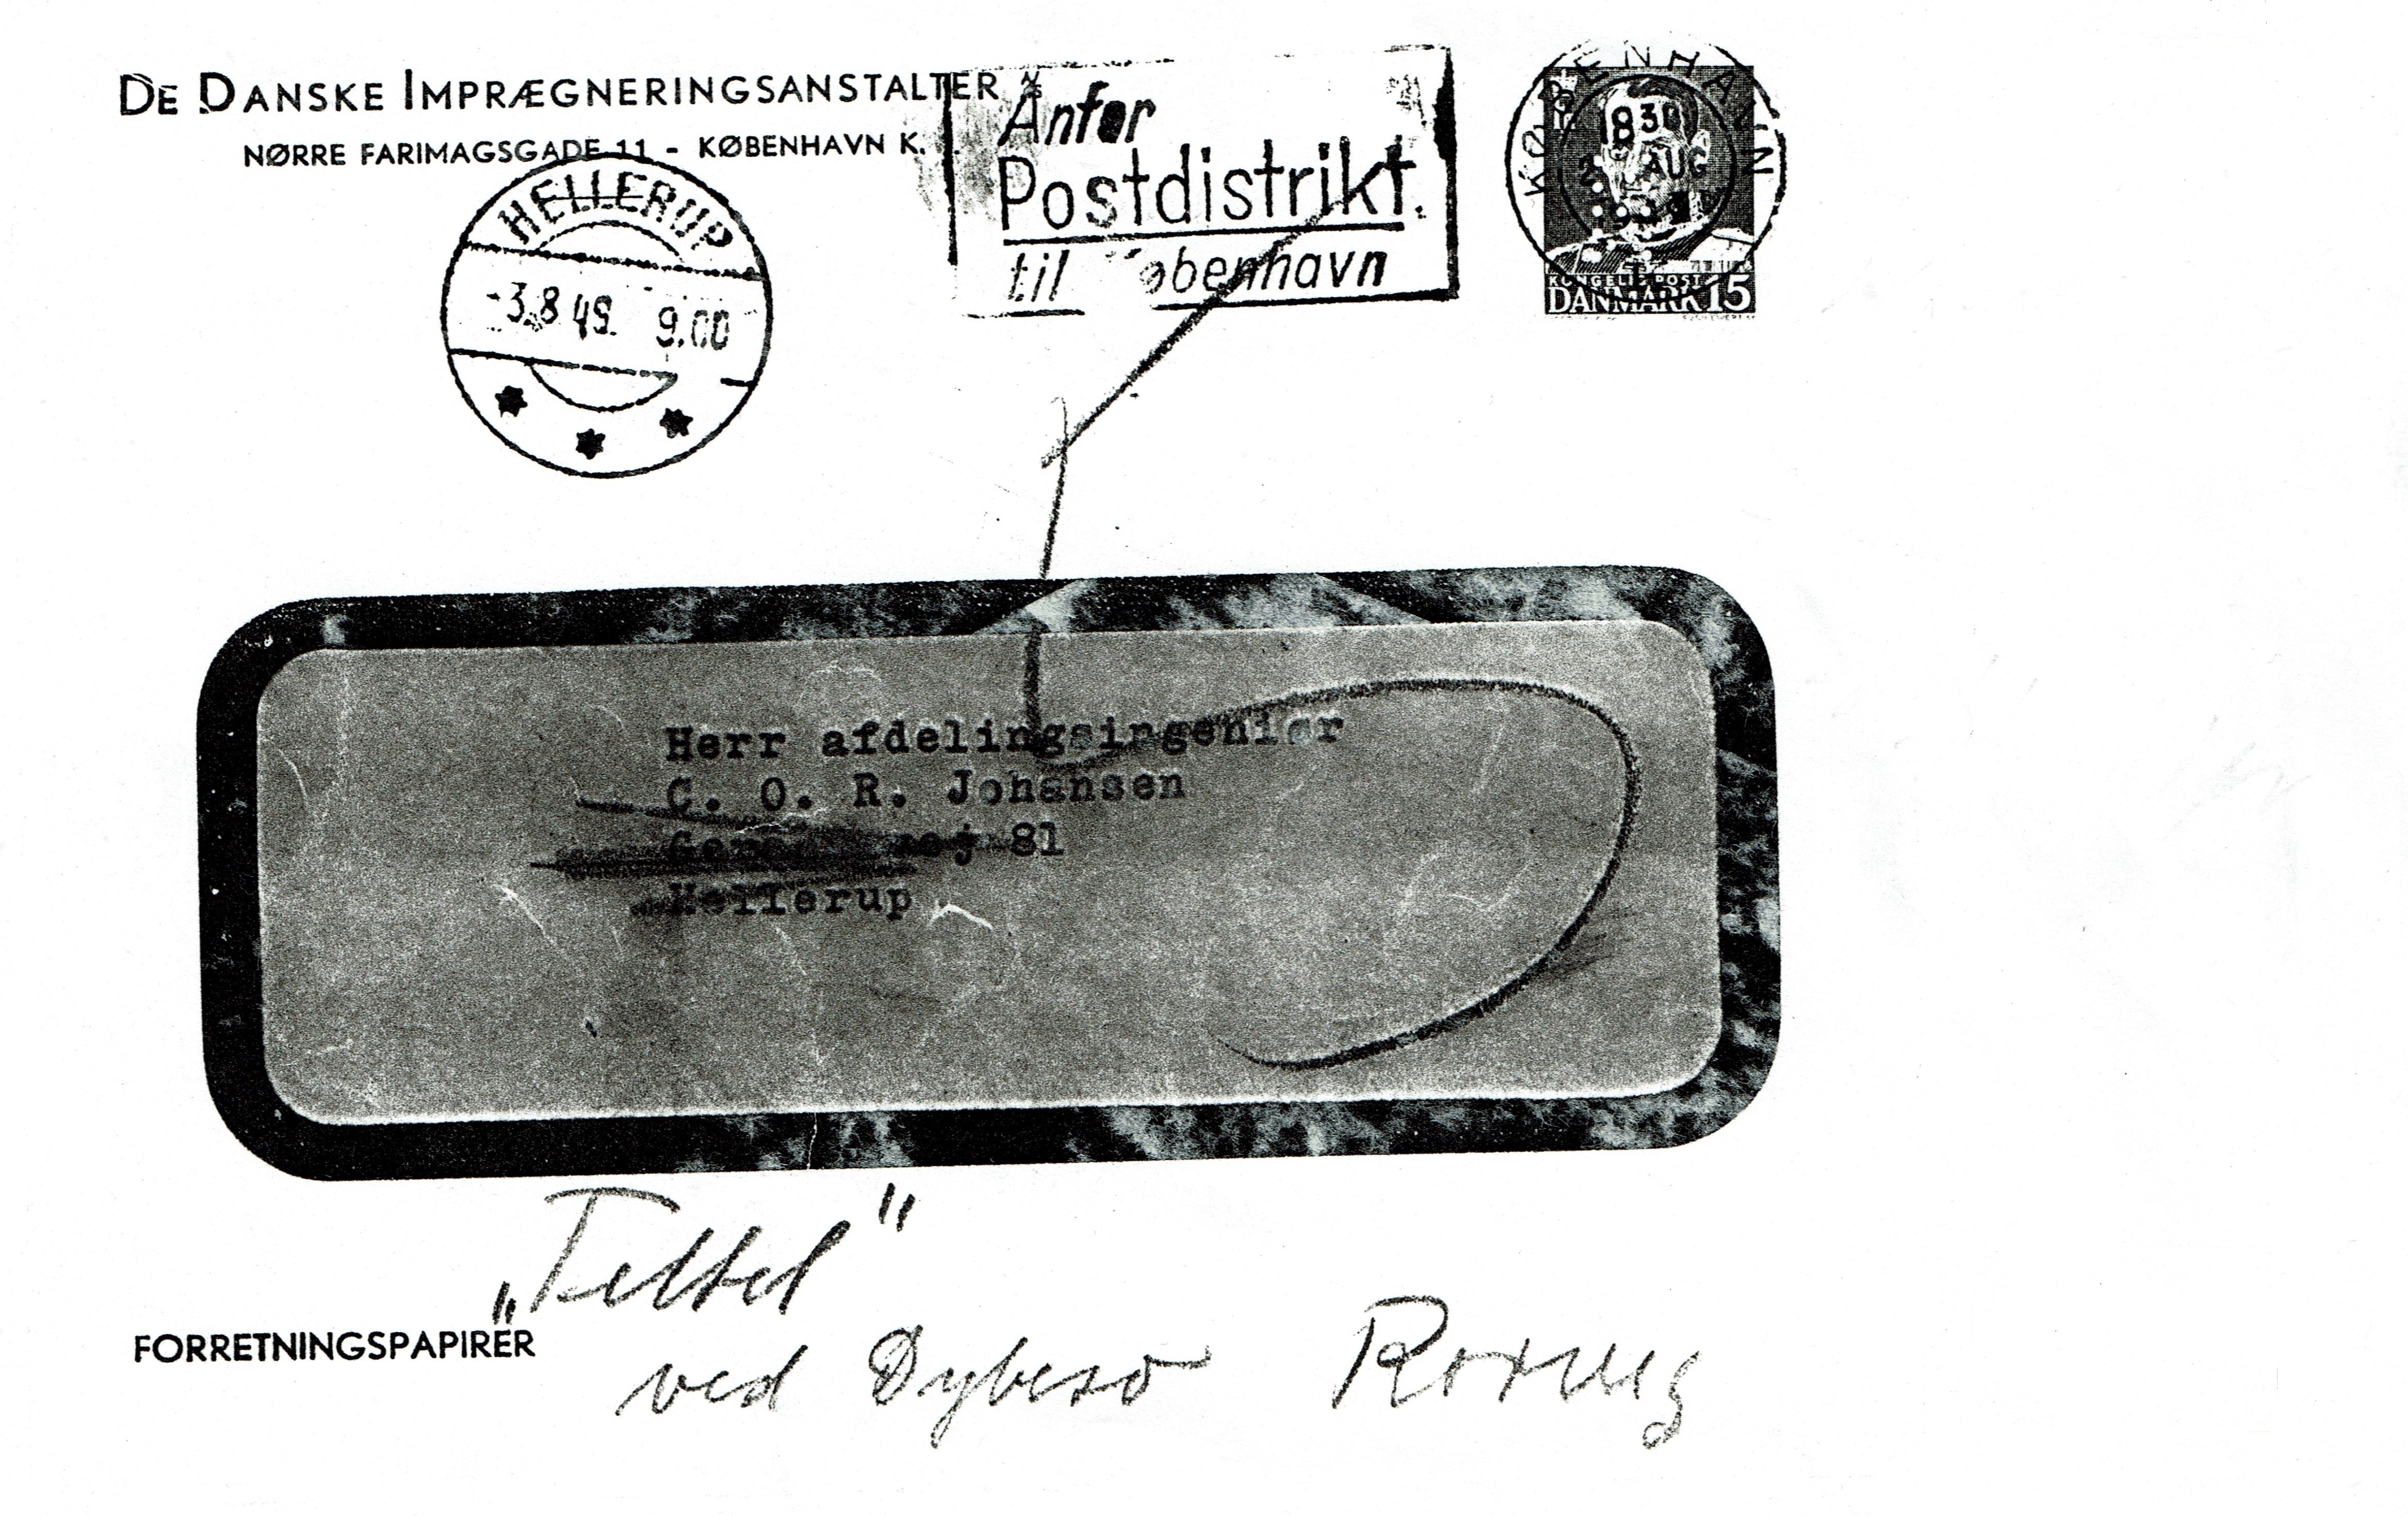 DE DANSKE IMPRÆGNERINGSANSTALTER A/S
NØRRE FARIMAGSGADE 11 - KØBENHAVN K.
HELLERUP
-3.8.49. 9.00
Anfør
Postdistrikt
til København
KØBENHAVN
8 30
2. AUG
KONGELIG POST
DANMARK 15
Herr afdelingsingeniør
C. O. R. Johansen
81
Hellerup
ved Dybesø Rørvig
FORRETNINGSPAPIRER